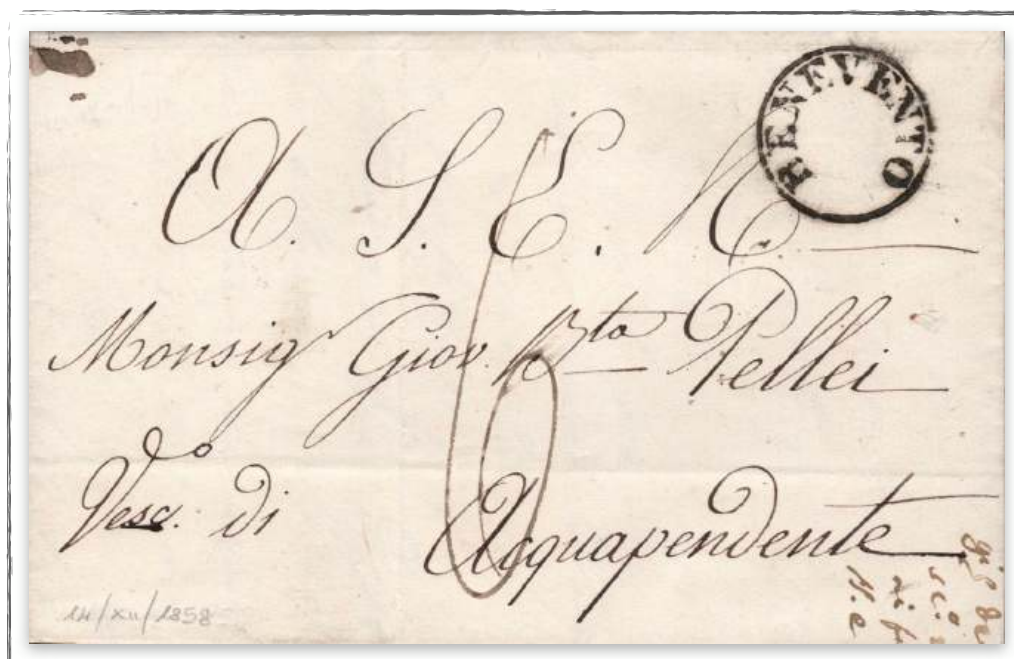 BENEVENTO
A. S. E. R.
Monsigr Giov. Bta Pellei
Vesco. di Acquapendente
6
14/XII/1858